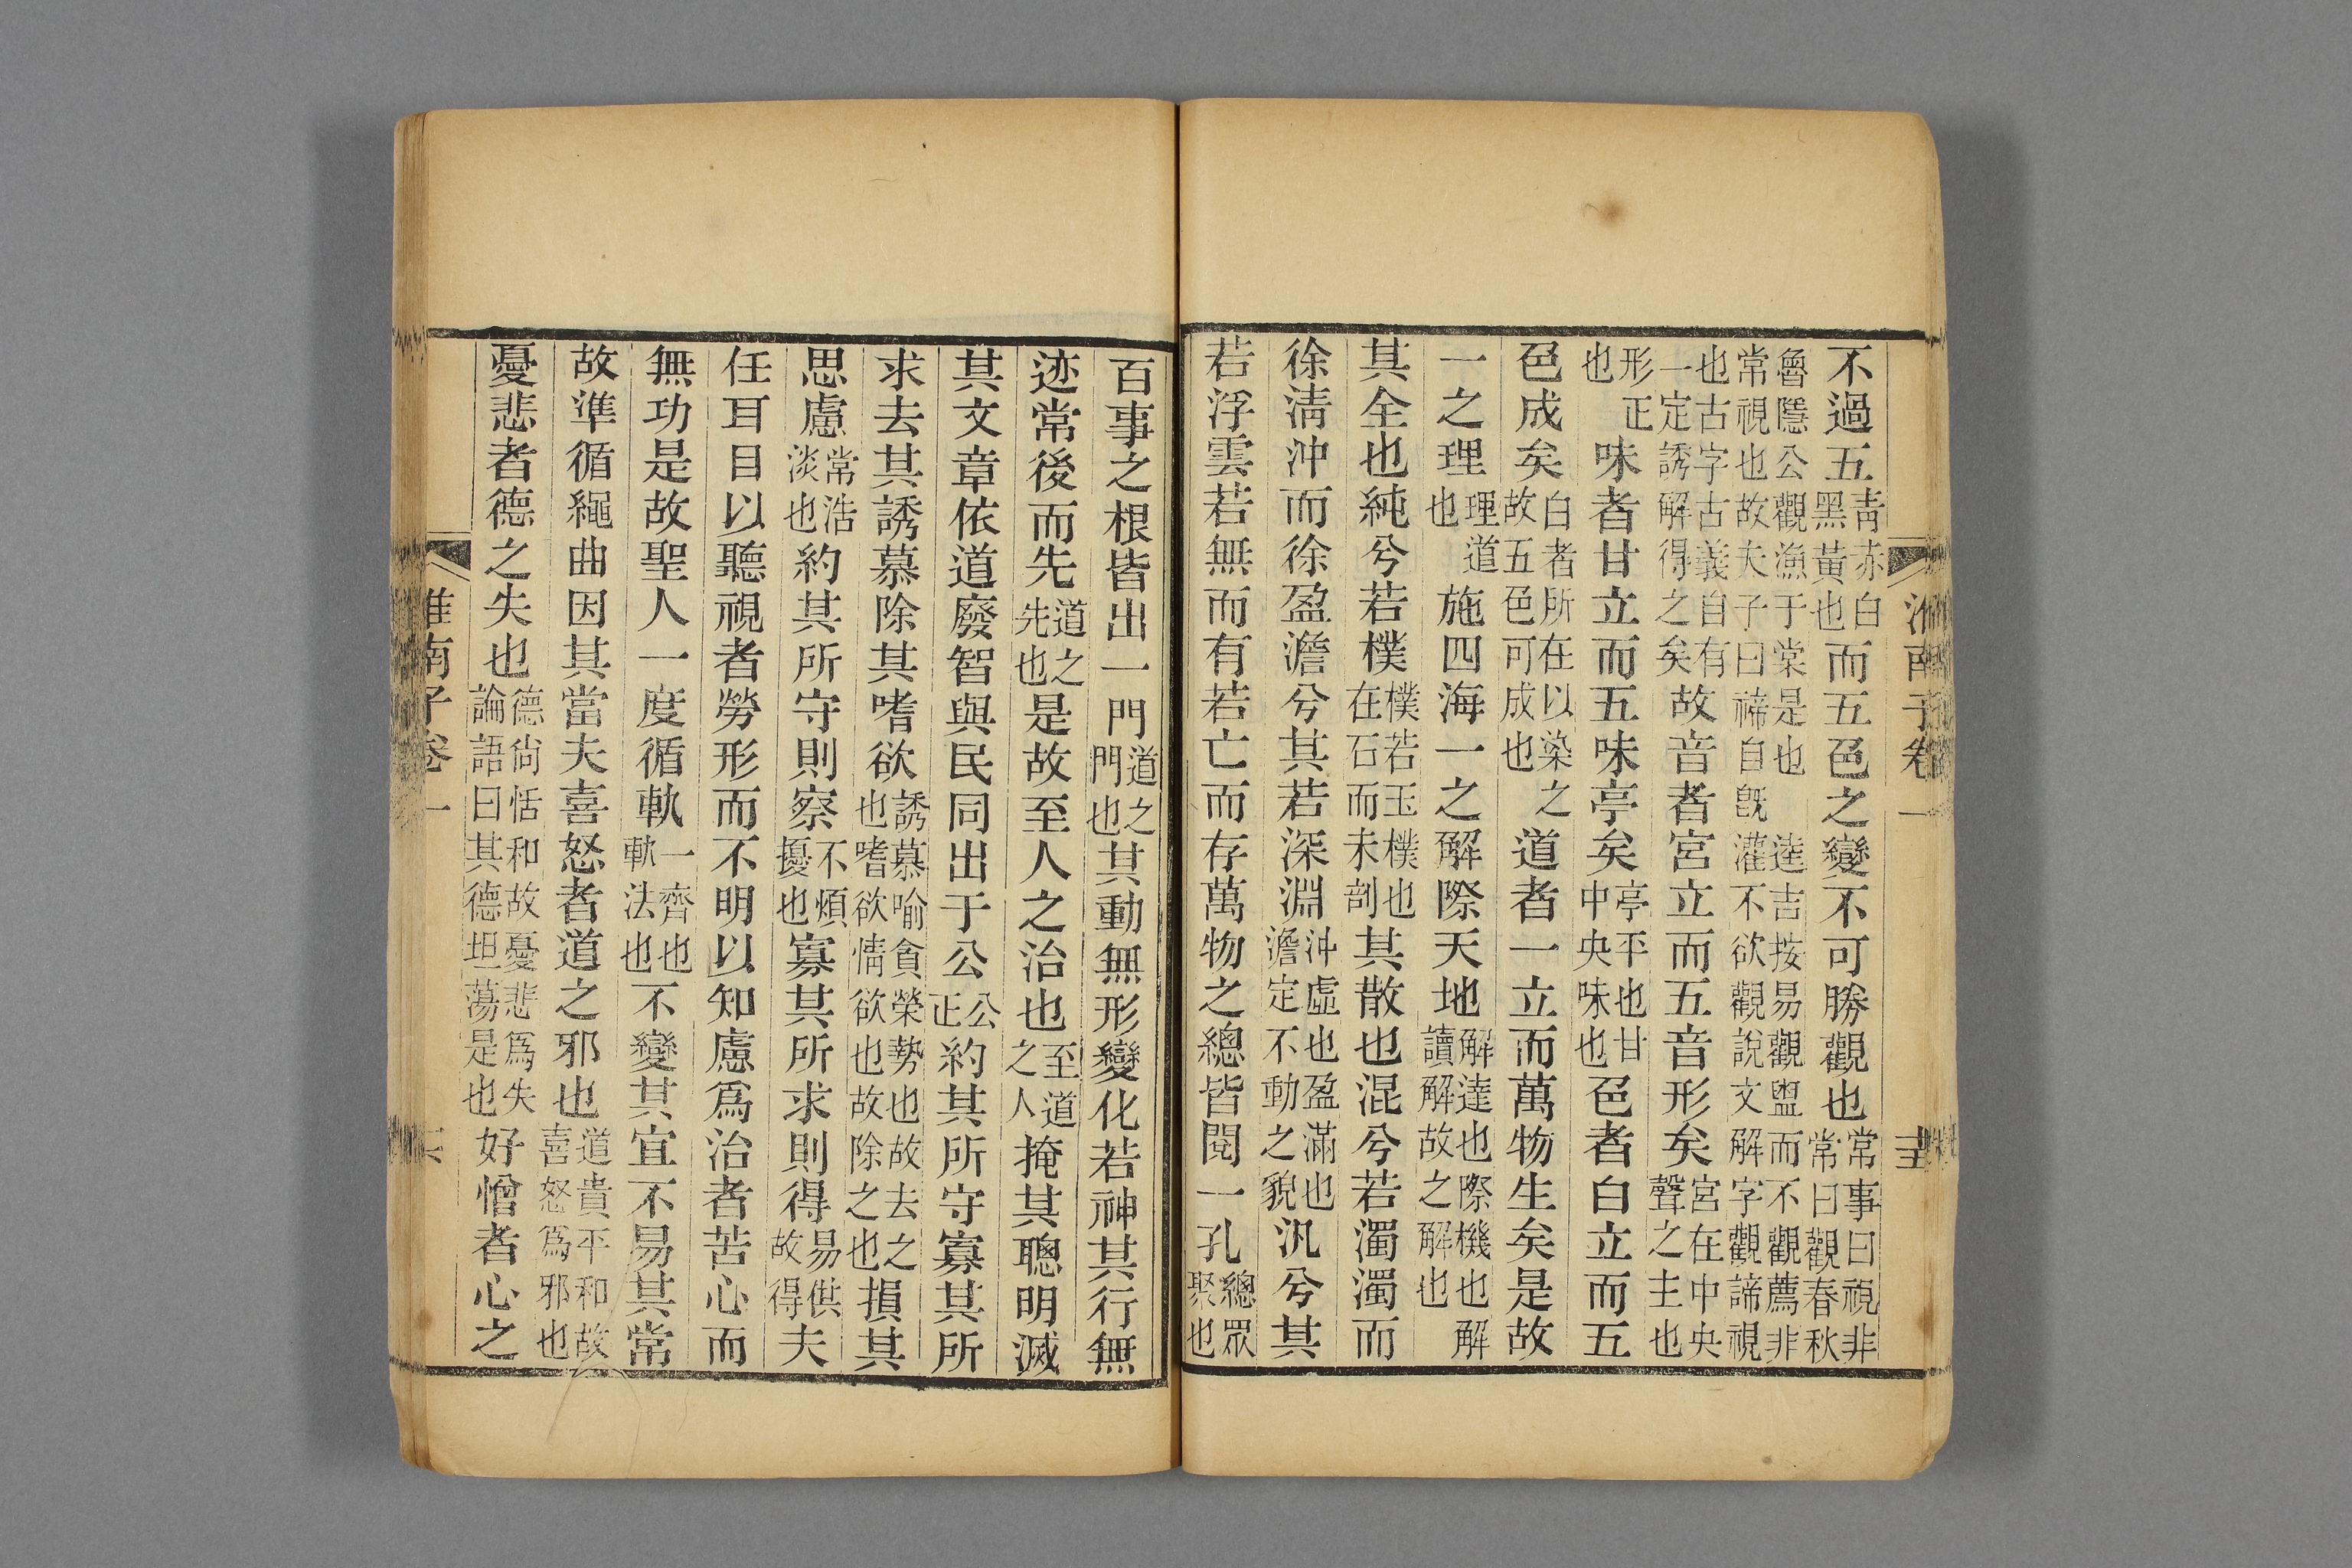 不過五青赤白黑黃也而五色之變不可勝觀也常事曰視非常曰觀春秋
魯隱公觀漁于棠是也 逵吉按易觀盥而不觀薦非
常視也故夫子曰禘自旣灌不欲觀說文解字觀諦視
也古字古義自有一定誘解得之矣故音者宮立而五音形矣宮在中央聲之主也
形正也味者甘立而五味亭矣亭平也甘中央味也色者白立而五
色成矣白者所在以染之故五色可成也道者一立而萬物生矣是故
一之理理道也施四海一之解際天地解達也際機也解讀解故之解也
其全也純兮若樸樸若玉樸也在石而未剖其散也混兮若濁濁而
徐清沖而徐盈澹兮其若深淵沖虛也盈滿也澹定不動之貌汎兮其
若浮雲若無而有若亡而存萬物之總皆閱一孔總眾聚也
淮南子卷一
百事之根皆出一門道之門也其動無形變化若神其行無
迹常後而先道之先也是故至人之治也至道之人掩其聰明滅
其文章依道廢智與民同出于公公正約其所守寡其所
求去其誘慕除其嗜欲誘慕喻貪榮勢也故去之也嗜欲情欲也故除之也損其
思慮常浩淡也約其所守則察不煩擾也寡其所求則得易供故得夫
任耳目以聽視者勞形而不明以知慮爲治者苦心而
無功是故聖人一度循軌一齊也軌法也不變其宜不易其常
故準循繩曲因其當夫喜怒者道之邪也道貴平和故喜怒爲邪也
憂悲者德之失也德尙恬和故憂悲爲失論語曰其德坦蕩是也好憎者心之
淮南子卷一